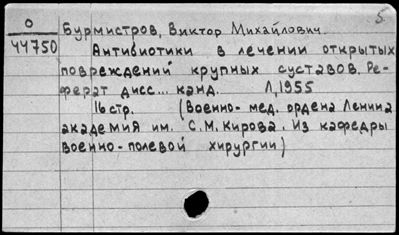 5.
О
44750
Бурмистров, Виктор Михайлович.
Антибиотики в лечении открытых
повреждений крупных суставов. Ре-
ферат дисс... канд. Л, 1955
16 стр. (Военно- мед. ордена Ленина
академия им. С.М. Кирова. Из кафедры
военно-полевой хирургии)